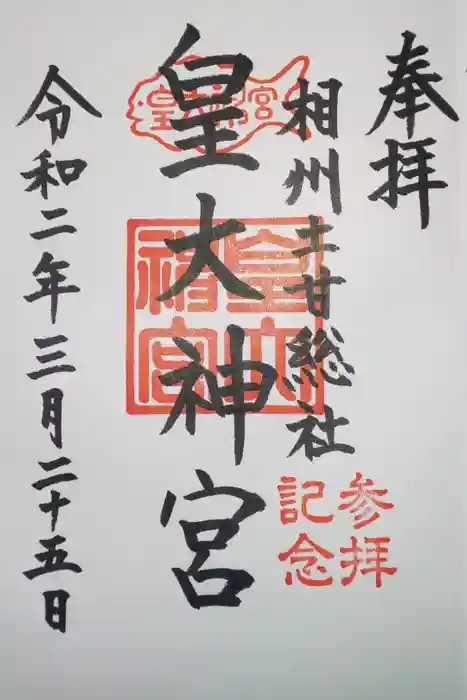 奉拝
相州土甘総社
皇大神宮
令和二年三月二十五日
参拝
記念
皇大神宮
皇大神宮